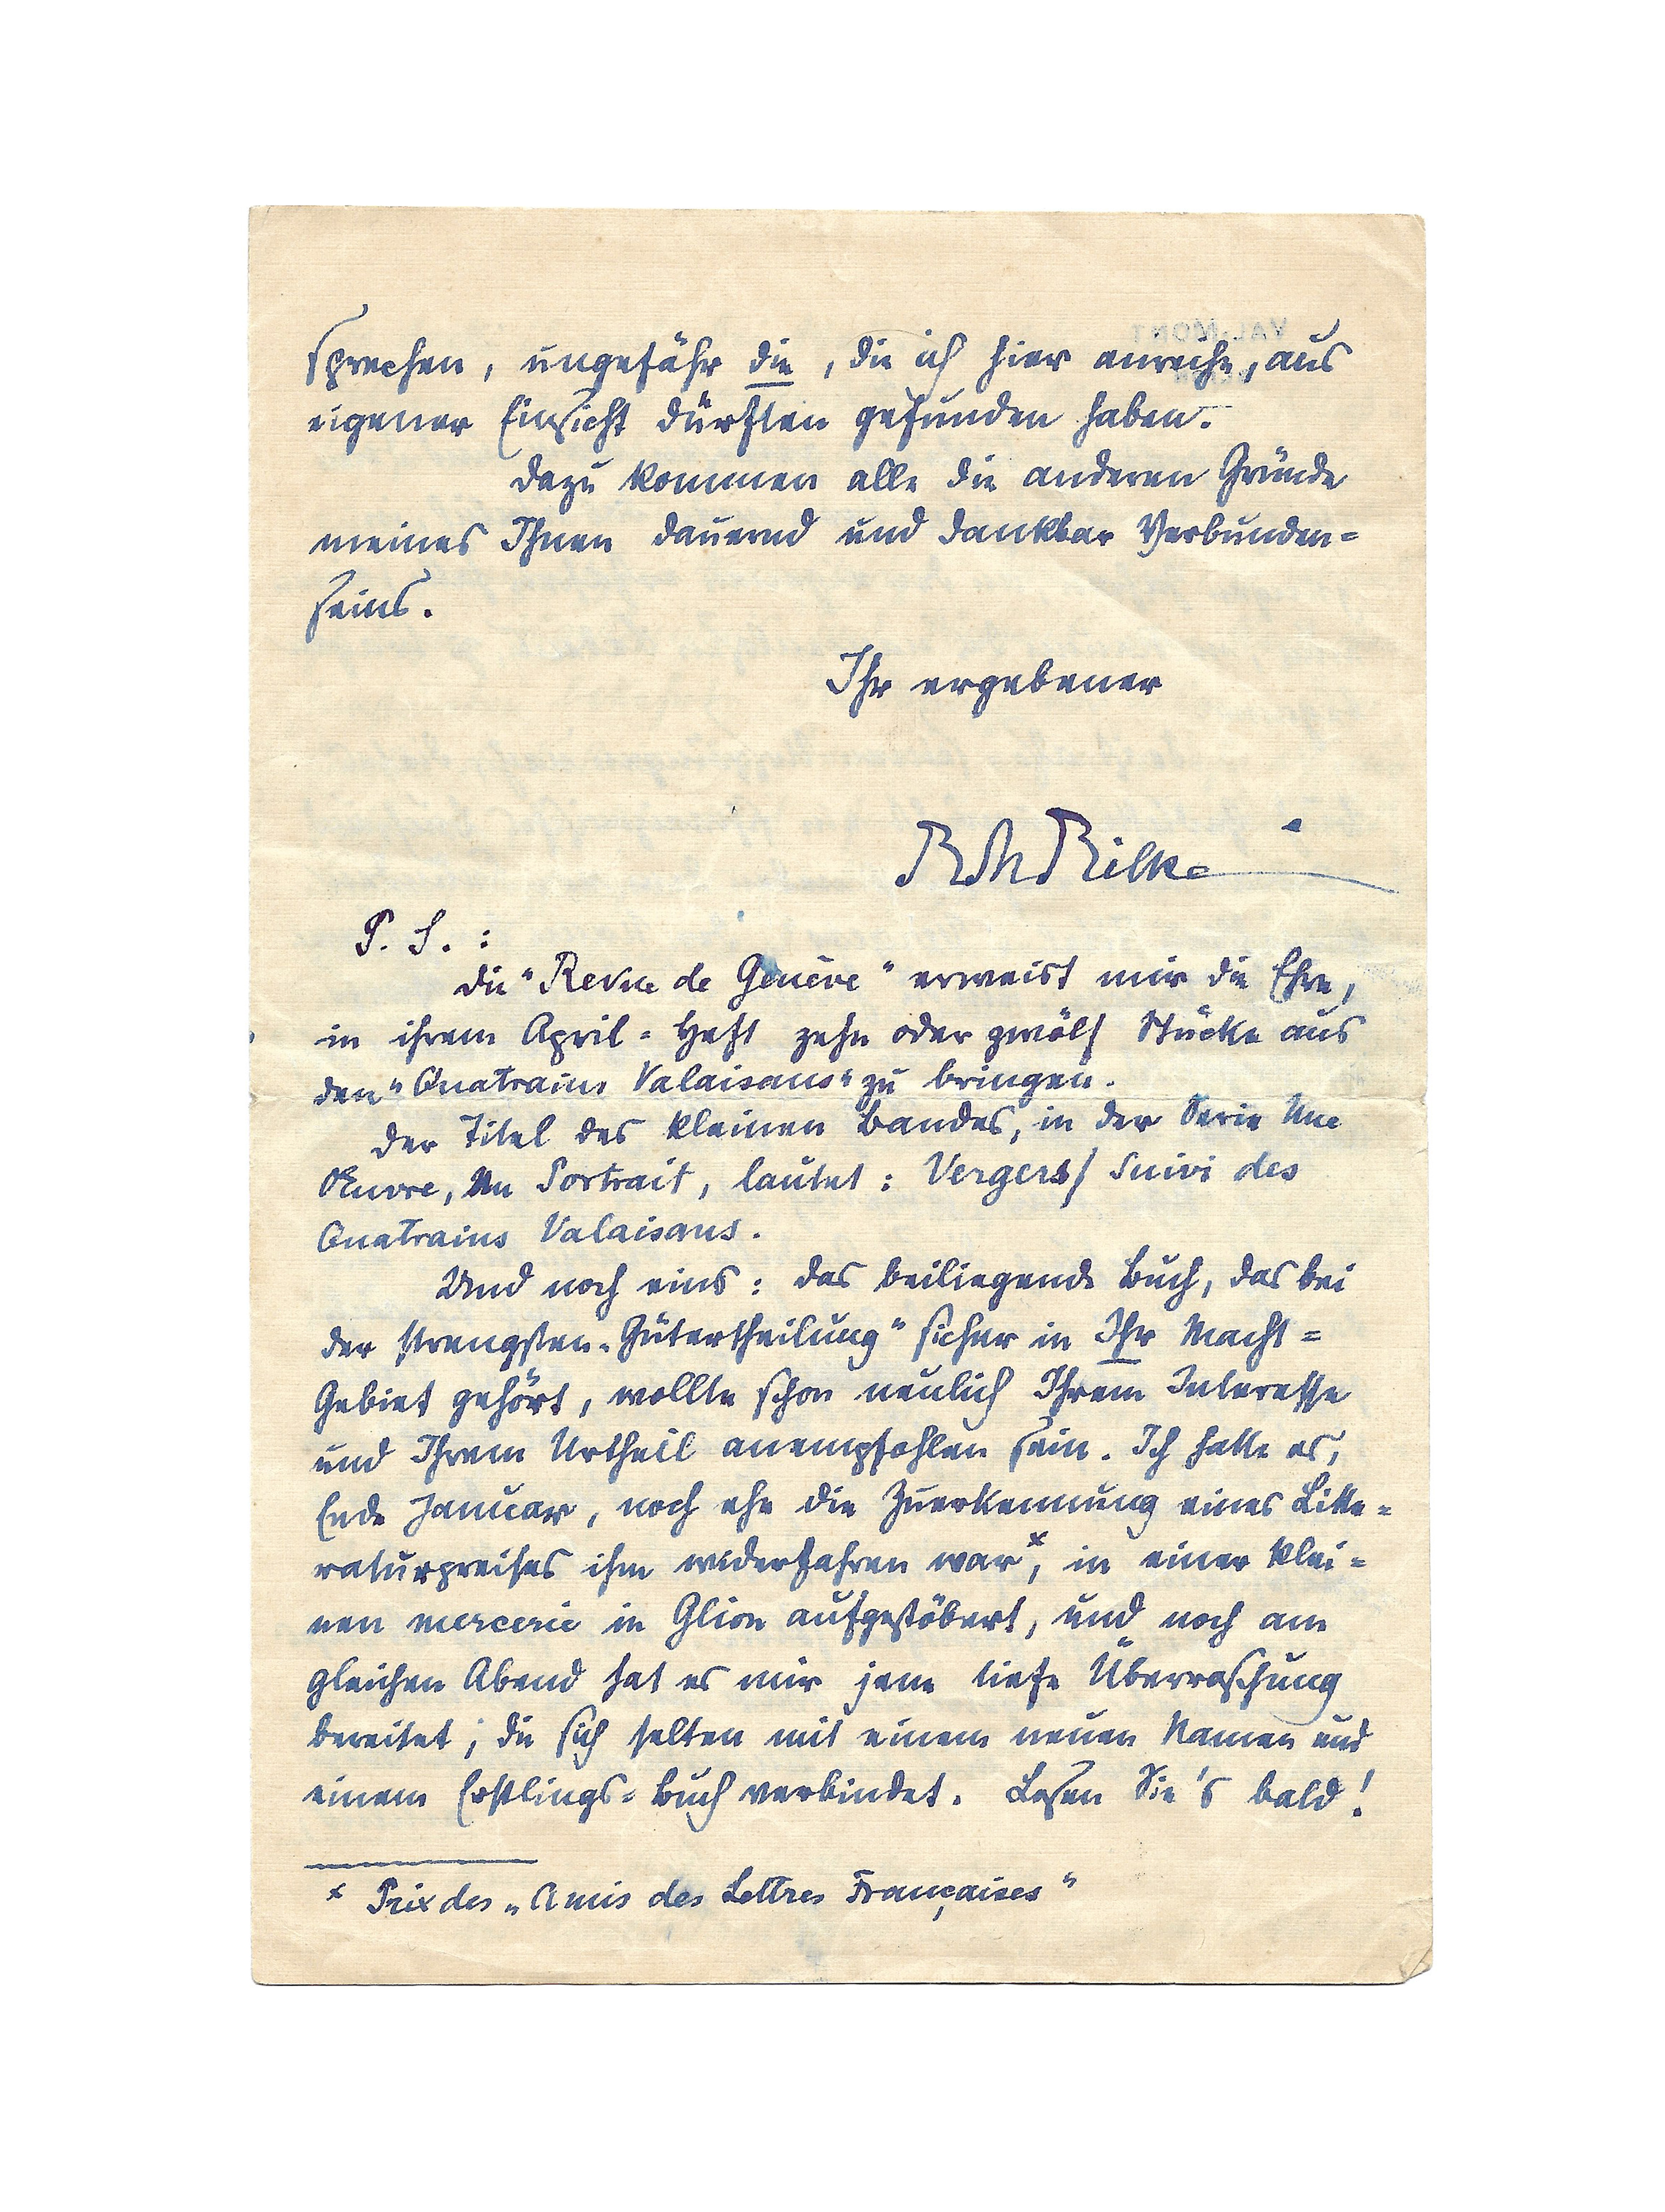 VAL-MONT
sprechen, ungefähr die, die ich hier anreihe, aus
eigener Einsicht dürften gefunden haben.
Dazu kommen alle die anderen Gründe
meines Ihnen dauernd und dankbar Verbunden=
seins.
Ihr ergebener
RMRilke
P. S. :
Die "Revue de Genève" erweist mir die Ehre,
in ihrem April=Heft zehn oder zwölf Stücke aus
den "Quatrains Valaisans" zu bringen.
Der Titel des kleinen Bandes, in der Serie Une
Œuvre, Un Portrait, lautet : Vergers/ Suivi des
Quatrains Valaisans.
Und noch eins : das beiliegende Buch, das bei
der strengsten „Gütertheilung" sicher in Ihr Macht=
Gebiet gehört, wollte schon neulich Ihrem Interesse
und Ihrem Urtheil anempfohlen sein. Ich hatte es,
Ende Januar, noch ehe die Zuerkennung eines Litte=
raturpreises ihm widerfahren war x, in einer klei=
nen mercerie in Glion aufgestöbert, und noch am
gleichen Abend hat es mir jene tiefe Überraschung
bereitet, die sich selten mit einem neuen Namen und
einem Erstlings=Buch verbindet. Lesen Sie's bald!
x Prix des „Amis des Lettres Françaises"